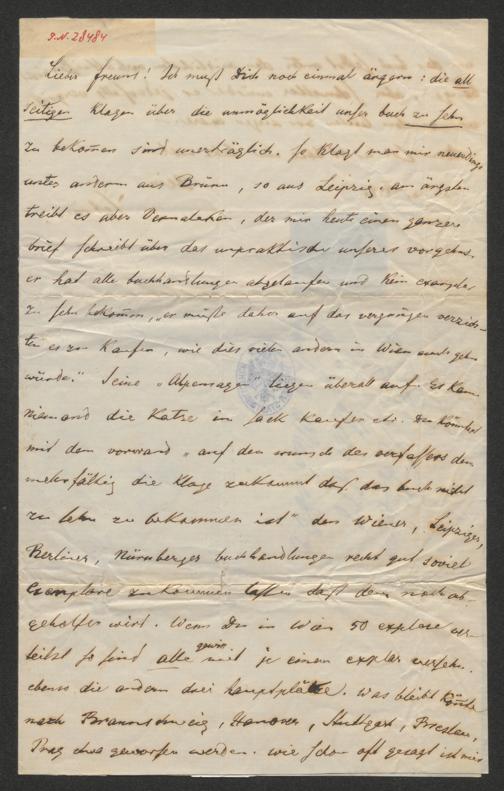 I.N. 28484
Lieber freund! Ich muß Dich noch einmal ärgern: die all
seitigen klagen über die unmöglichkeit unser buch zu sehn
zu bekommen sind unerträglich. So klagt man mir neuerdings
unter anderm aus Brünn, so aus Leipzig. am ärgsten
treibt es aber Vernaleken, der mir heute einen ganzen
brief schreibt über das unpraktische unseres vorgehns.
er hat alle buchhandlungen abgelaufen und kein exemplar
zu sehn bekommen, „er müßte daher auf das vergnügen verzich-
ten es zu kaufen, wie dies vielen andern in Wien auch gehn
würde." Seine „Alpensagen" liegen überall auf. Es kann
niemand die Katze im sack kaufen etc. Du könntest
mit dem vorwand „auf den wunsch des verfassers dem
mehrfältig die klage zukommt daß das buch nicht
zu sehn zu bekommen ist" den Wiener, Leipziger,
Berliner, Nürnberger buchhandlungen recht gut soviel
Exemplare zukommen lassen daß dem noth ab-
geholfen wird. Wenn Du in Wien 50 explare ver-
teilst so sind alle gewiss mit je einem explar versehn.
ebenso die andern drei hauptplätze. was bleibt könnte
nach Braunschweig, Hanover, Stuttgart, Breslau,
Prag etwa geworfen werden. wie schon oft gesagt ist mir